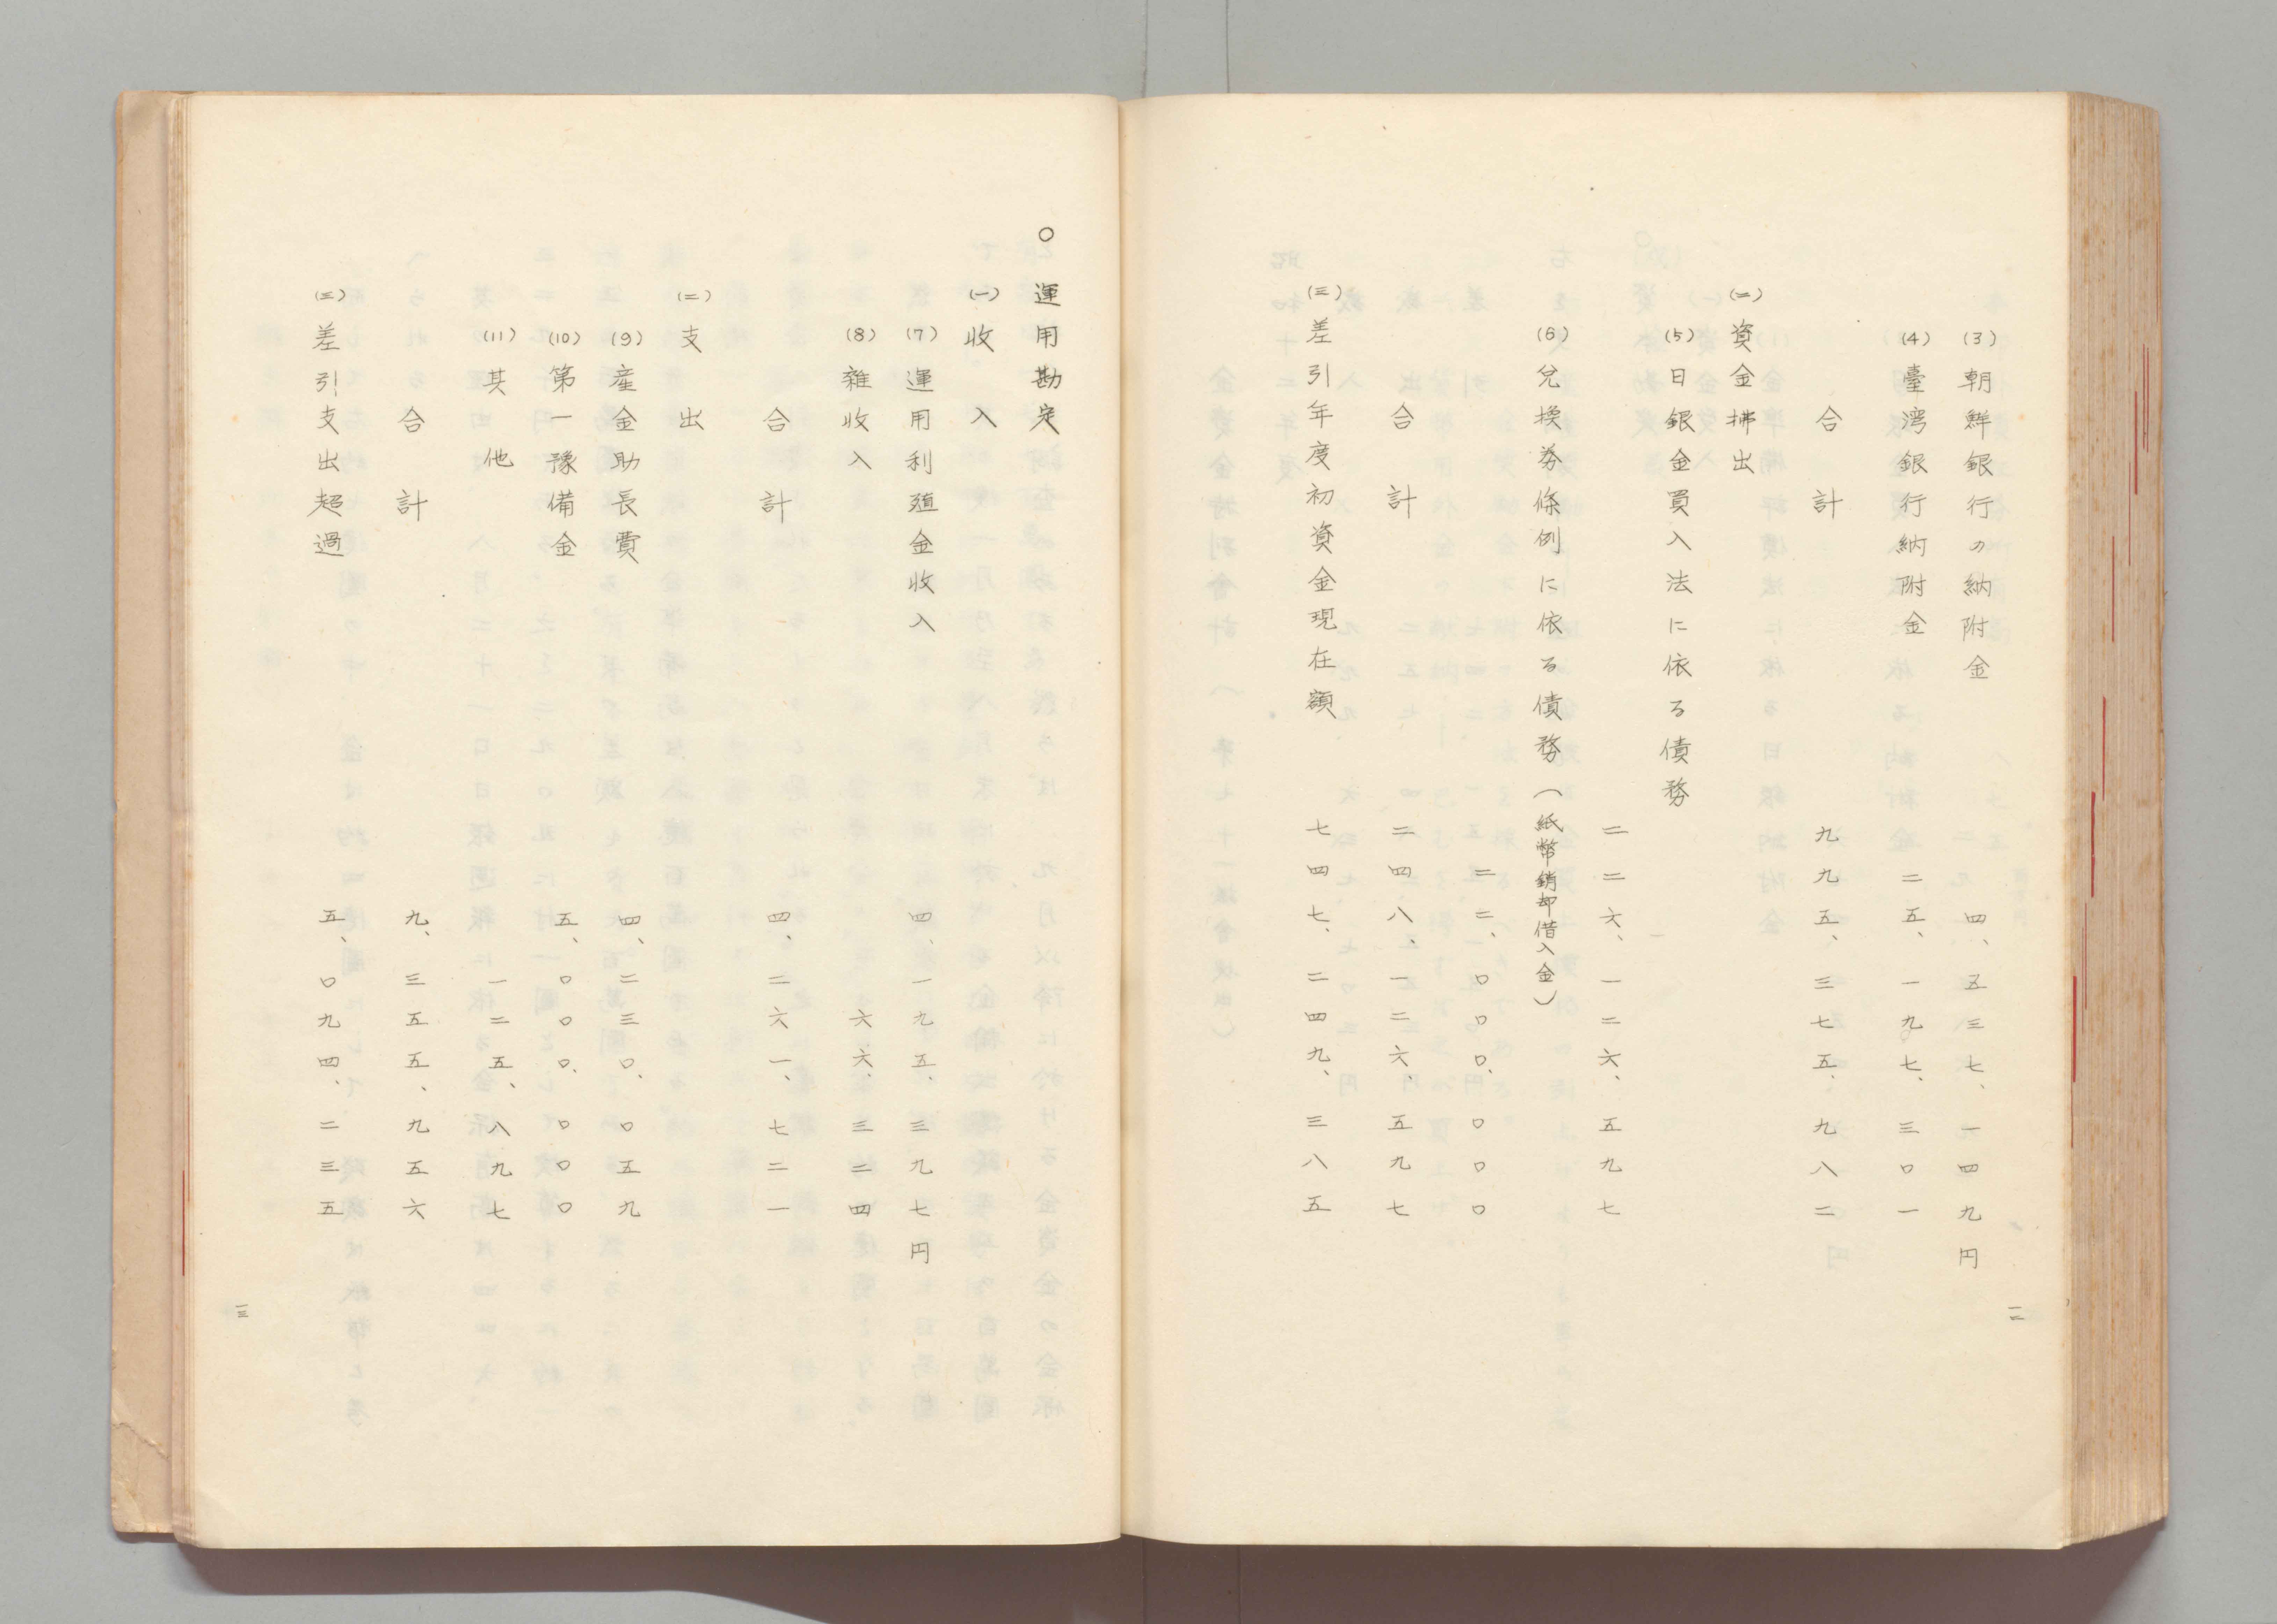 (3)朝鮮銀行の納附金　四、五三七、一四九円
(4)臺湾銀行納附金　二五、一九七、三〇一
合計　九九五、三七五、九八二
(二)資金拂出
(5)日銀金買入法に依る債務　二二六、一二六、五九七
(6)兌換券條例に依る債務(紙幣銷却借入金)　二二、〇〇〇、〇〇〇
合計　二四八、一二六、五九七
(三)差引年度初資金現在額　七四七、二四九、三八五
一二
〇運用勘定
(一)收入
(7)運用利殖金收入　四、一九五、三九七円
(8)雜收入　六六、三二四
合計　四、二六一、七二一
(二)支出
(9)産金助長費　四、二三〇、〇五九
(10)第一豫備金　五、〇〇〇、〇〇〇
(11)其他　一二五、八九七
合計　九、三五五、九五六
(三)差引支出超過　五、〇九四、二三五
一三